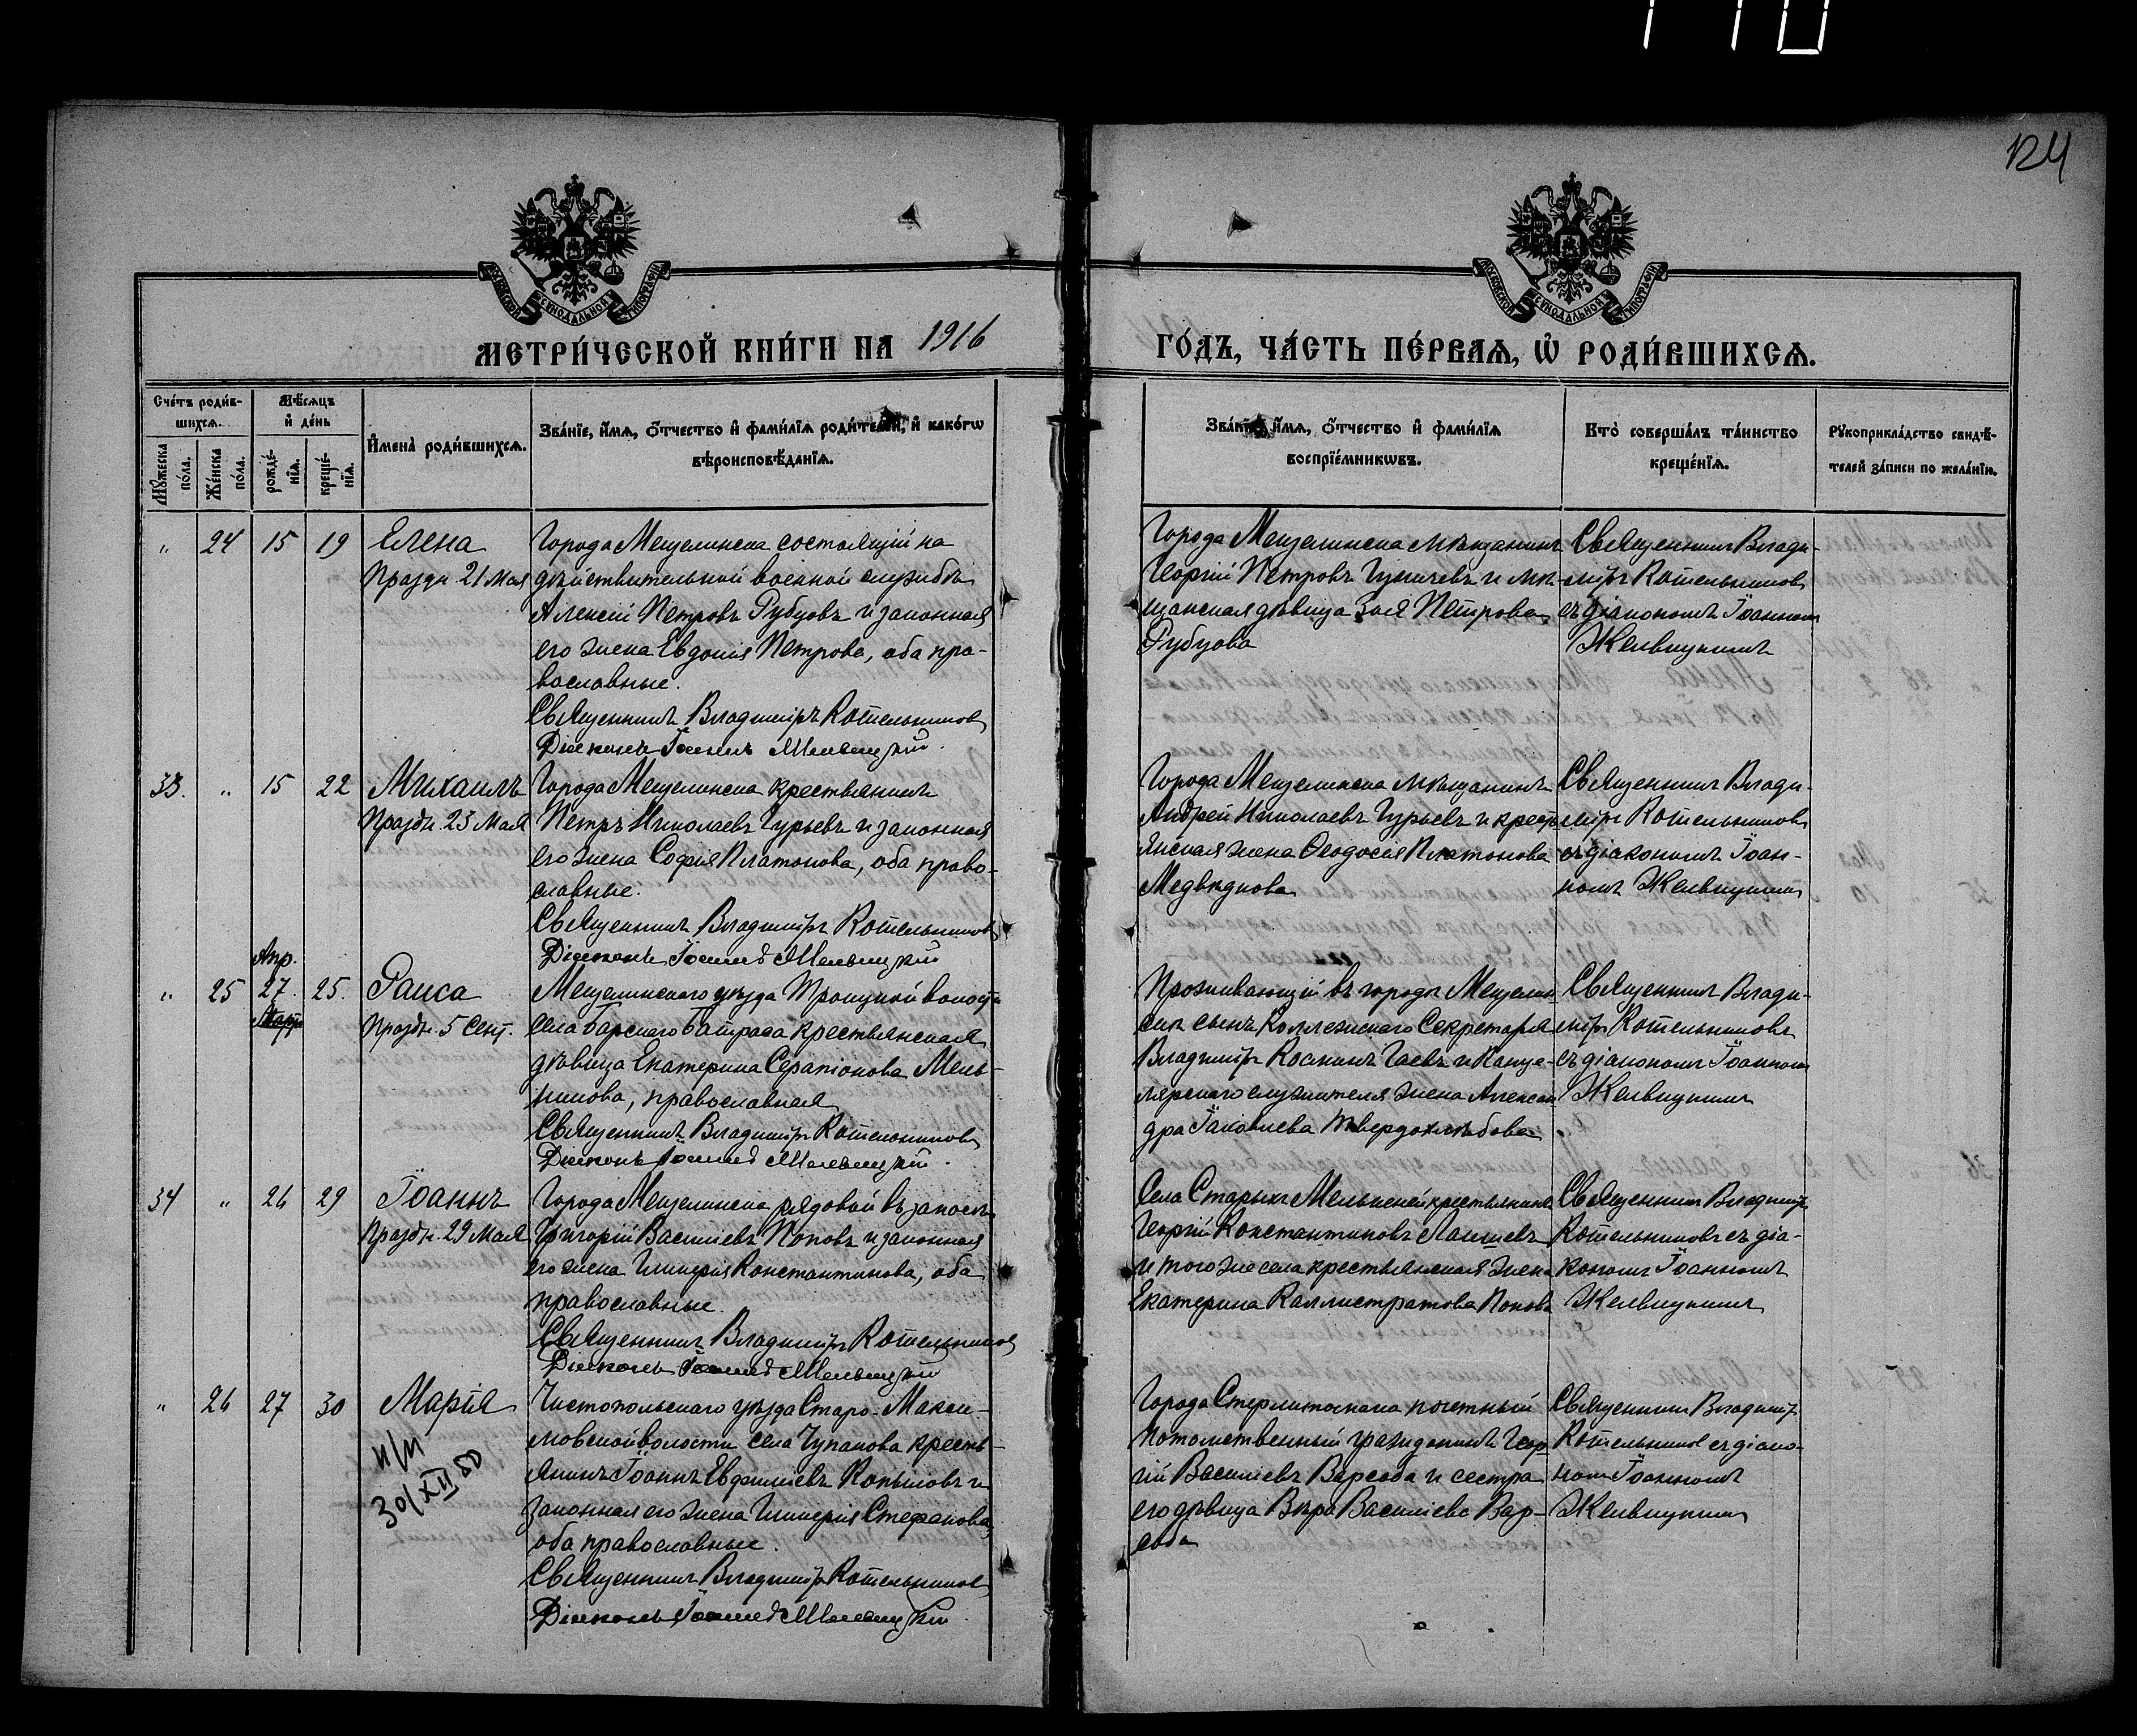 124
МОСКОВСКОЙ СѴНОДАЛЬНОЙ ТИПОГРАФІИ
МОСКОВСКОЙ СѴНОДАЛЬНОЙ ТИПОГРАФІИ
МЕТРИ́ЧЕСКОЙ КНИ́ГИ НА 1916
ГО́ДЪ, ЧА́СТЬ ПЕ́РВАѦ, Ѽ РОДИ́ВШИХСѦ.
Сче́тъ роди́в-
шихсѧ.
Мꙋ́жеска по́ла.
Же́нска по́ла.
Мѣ́сѧцъ
и҆ де́нь
рожде́-
нїѧ.
креще́-
нїѧ.
И҆мена̀ роди́вшихсѧ.
Зва́нїе, и҆́мѧ, ѻ҆́тчество и҆ фами́лїѧ роди́телей, и҆ како́гѡ
вѣроисповѣ́данїѧ.
Зва́нїе, и҆́мѧ, ѻ҆́тчество и҆ фами́лїѧ
воспрїе́мникѡвъ.
Кто̀ соверша́лъ та́инство
креще́нїѧ.
Рꙋкоприкла́дство свидѣ́-
телей за́писи по жела́нїю.
„ 24 15 19 Елена
Праздн 21 Мая
Города Мензелинска состоящій на
дѣйствительной военной службѣ
Алексій Петровъ Рубцовъ и законная
его жена Евдокія Петрова, оба пра-
вославные.
Священникъ Владиміръ Котельниковъ
Діаконъ Іоаннъ
Города Мензелинска мѣщанинъ
Георгій Петровъ и мѣ-
щанская дѣвица Зоя Петрова
Рубцова
Священникъ Влади-
міръ Котельниковъ
съ діакономъ Іоанномъ
33. „ 15 22 Михаилъ
Праздн. 23 Мая
Города Мензелинска крестьянинъ
Петръ Николаевъ Гурьевъ и законная
его жена Софія Платонова, оба право-
славные.
Священникъ Владиміръ Котельниковъ
Діаконъ Іоаннъ
Города Мензелинска мѣщанинъ
Андрей Николаевъ Гурьевъ и кресть
янская жена Ѳеодосія Платонова
Медвѣдкова
Священникъ Влади-
міръ Котельниковъ
съ діакономъ Іоан-
номъ
Апр.
„ 25 27. 25. Раиса
Праздн. 5 Сент.
Мензелинскаго уѣзда Троицкой волости
села Барскаго Батраса крестьянская
дѣвица Екатерина Серапіонова Мель-
никова, православная
Священникъ Владиміръ Котельниковъ
Діаконъ Іоаннъ
Проживающій въ городѣ Мензелин
скѣ сынъ Коллежскаго Секретаря
Владиміръ Гаевъ и Канце-
лярскаго служителя жена Алексан
дра Іаковлева Твердохлѣбова
Священникъ Влади-
міръ Котельниковъ
съ діакономъ Іоанномъ
34 „ 26 29 Іоаннъ
Праздн. 29 Мая
Города Мензелинска рядовой въ запасѣ
Григорій Василіевъ Поповъ и законная
его жена Гликерія Константинова, оба
православные.
Священникъ Владиміръ Котельниковъ
Діаконъ Іоаннъ
Села Старыхъ крестьянинъ
Георгій Константиновъ
и того же села крестьянская жена
Екатерина Каллистратова Попова
Священникъ Владиміръ
Котельниковъ съ діа-
кономъ Іоанномъ
„ 26 27 30 Марія
н/м
30/XII 50
Чистопольскаго уѣзда Старо-Макси-
мовской волости села Чупакова кресть-
янинъ Іоаннъ Евфиміевъ Копыловъ и
законная его жена Гликерія Стефанова,
оба православные.
Священникъ Владиміръ Котельниковъ
Діаконъ Іоаннъ
Города Стерлитамака почетный
потомственный гражданинъ Геор
гій Василіевъ и сестра
его дѣвица Вѣра Василіева
Священникъ Владиміръ
Котельниковъ съ діако-
номъ Іоанномъ